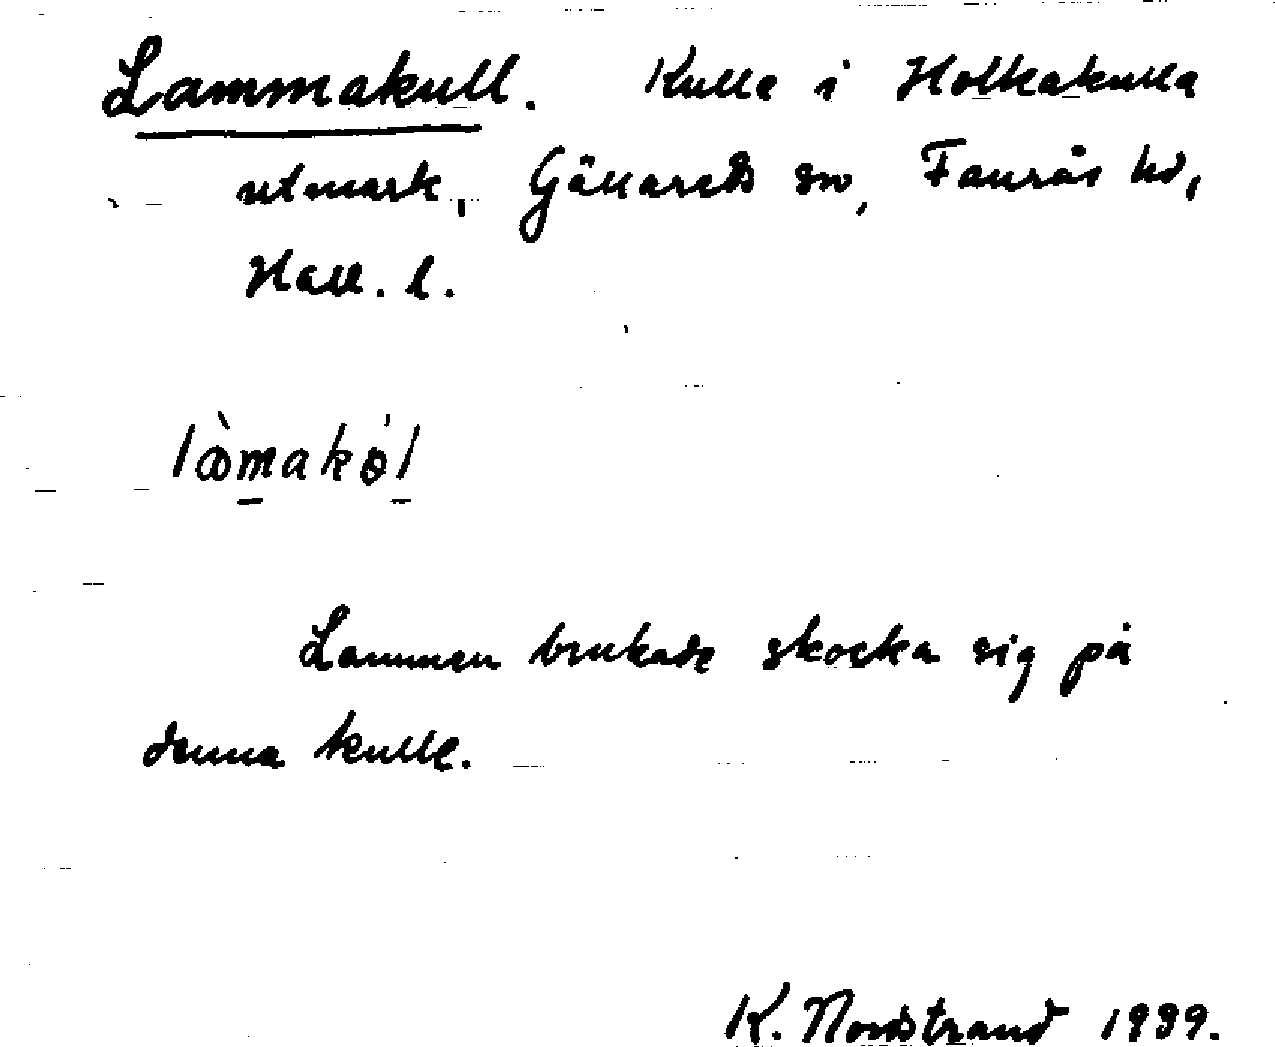 Lammakull. Kulle i Holkakulla
utmark, Gällareds sn, Faurås hd,
Hall. l.
lòmakól
Lammen brukade skocka sig på
denna kulle.
K. Nordstrand 1939.